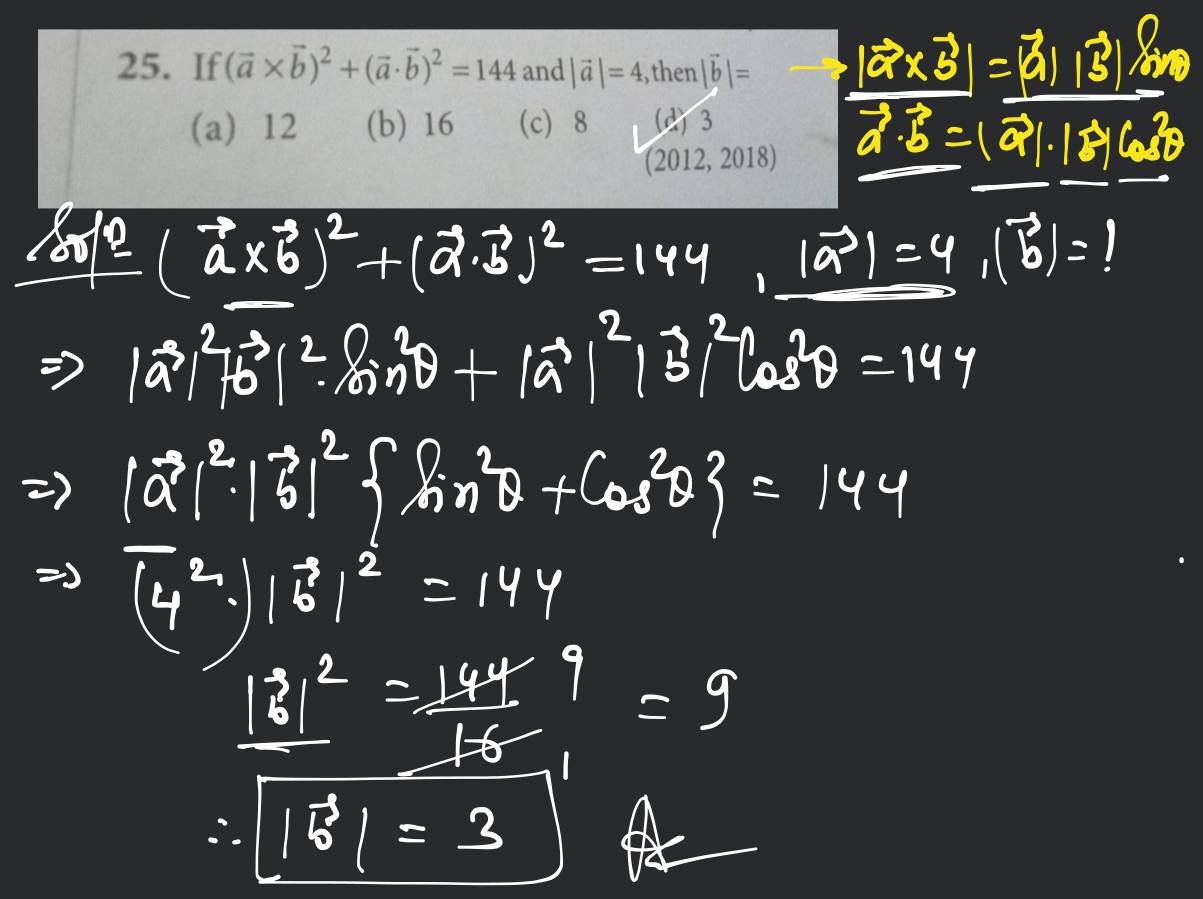 25. If (a⃗ × b⃗)² + (a⃗·b⃗)² = 144 and |a⃗| = 4, then |b⃗| =
(a) 12 (b) 16 (c) 8 (d) 3
(2012, 2018)
→ |a⃗ × b⃗| = |a⃗| |b⃗| Sinθ
a⃗·b⃗ = |a⃗|·|b⃗| Cos²θ
Solⁿ (a⃗ × b⃗)² + (a⃗·b⃗)² = 144 , |a⃗| = 4 , |b⃗| = !
⇒ |a⃗|² |b⃗|²· Sin²θ + |a⃗|² |b⃗|² Cos²θ = 144
⇒ |a⃗|²·|b⃗|² { Sin²θ + Cos²θ } = 144
⇒ (4²·) |b⃗|² = 144
|b⃗|² = 144/16 9 1 = 9
∴ |b⃗| = 3